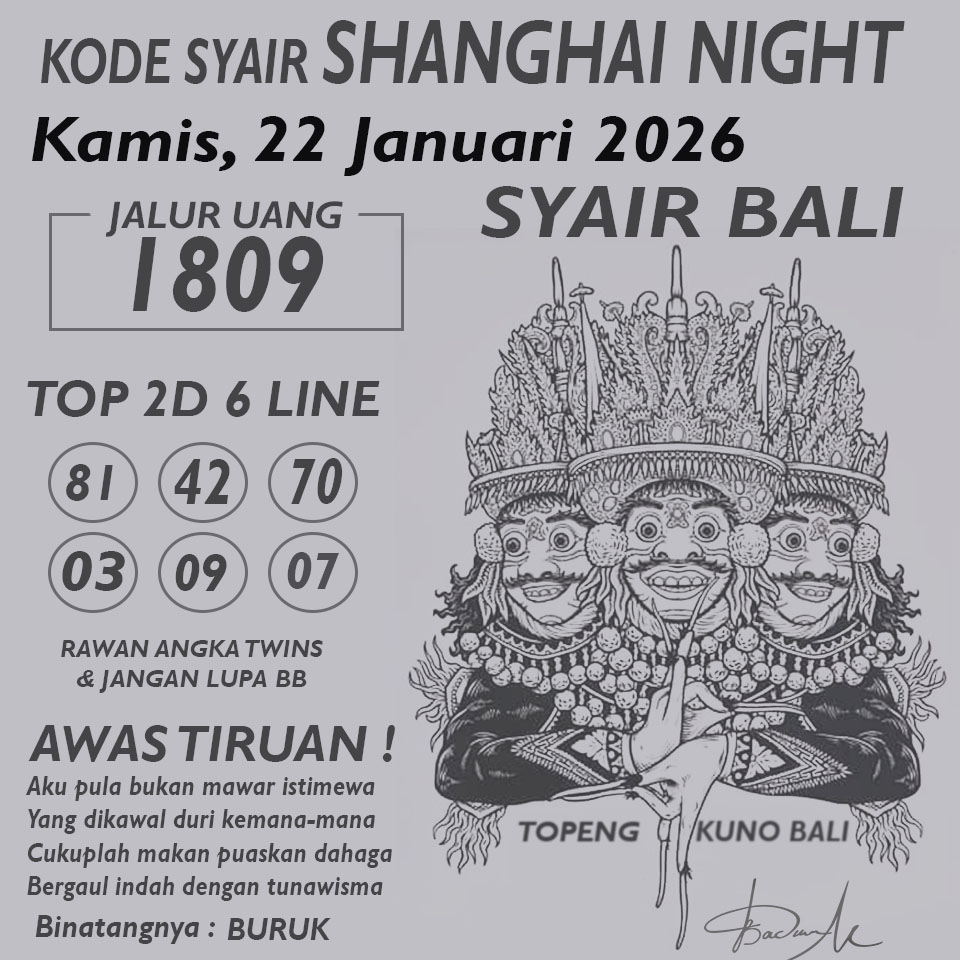 KODE SYAIR SHANGHAI NIGHT
Kamis, 22 Januari 2026
SYAIR BALI
JALUR UANG
1809
TOP 2D 6 LINE
81 42 70
03 09 07
RAWAN ANGKA TWINS
& JANGAN LUPA BB
AWAS TIRUAN !
Aku pula bukan mawar istimewa
Yang dikawal duri kemana-mana
Cukuplah makan puaskan dahaga
Bergaul indah dengan tunawisma
Binatangnya : BURUK
TOPENG KUNO BALI